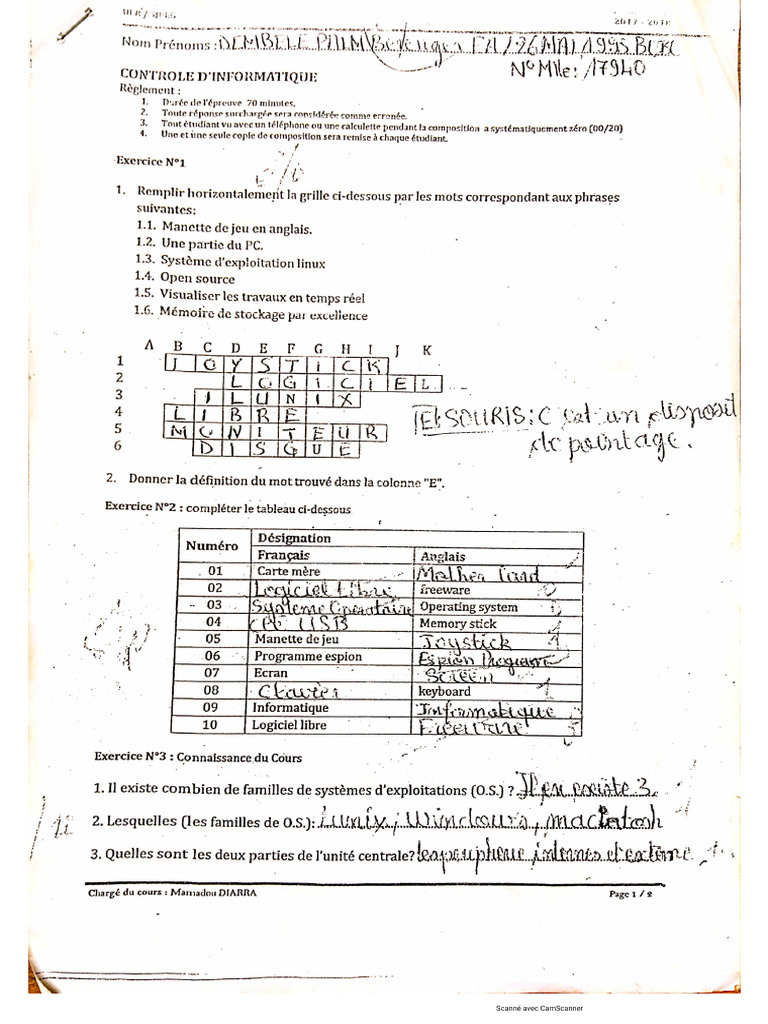 2017 - 2018
Nom Prénoms : DEMBELE PALM Berenger FA / 26 MAI 1995 BCK
N° Mlle : 17940
CONTROLE D'INFORMATIQUE
Règlement :
1. Durée de l'épreuve 70 minutes.
2. Toute réponse surchargée sera considérée comme erronée.
3. Tout étudiant vu avec un téléphone ou une calculette pendant la composition a systématiquement zéro (00/20)
4. Une et une seule copie de composition sera remise à chaque étudiant.
Exercice N°1
1. Remplir horizontalement la grille ci-dessous par les mots correspondant aux phrases
suivantes:
1.1. Manette de jeu en anglais.
1.2. Une partie du PC.
1.3. Système d'exploitation linux
1.4. Open source
1.5. Visualiser les travaux en temps réel
1.6. Mémoire de stockage par excellence
A B C D E F G H I J K
1 J O Y S T i C K
2 L O G i C i E L
3 I L U N i X
4 L I B R E
5 M O N I T E U R
6 D I S Q U E
SOURIS : C est un disposit
de pointage.
2. Donner la définition du mot trouvé dans la colonne "E".
Exercice N°2 : compléter le tableau ci-dessous
Numéro Désignation
Français Anglais
01 Carte mère Mather Card
02 Logiciel Libre freeware
03 Système Operatoire Operating system
04 clé USB Memory stick
05 Manette de jeu Joystick 1
06 Programme espion Espion Programe
07 Ecran Screen
08 Clavier keyboard 1
09 Informatique Informatique
10 Logiciel libre Freeware
Exercice N°3 : Connaissance du Cours
1. Il existe combien de familles de systèmes d'exploitations (O.S.) ? Il en existe 3.
2. Lesquelles (les familles de O.S.): Lunix, Windours, macintosh
3. Quelles sont les deux parties de l'unité centrale? les peupherie internes et externe
Chargé du cours : Mamadou DIARRA Page 1 / 2
Scanné avec CamScanner